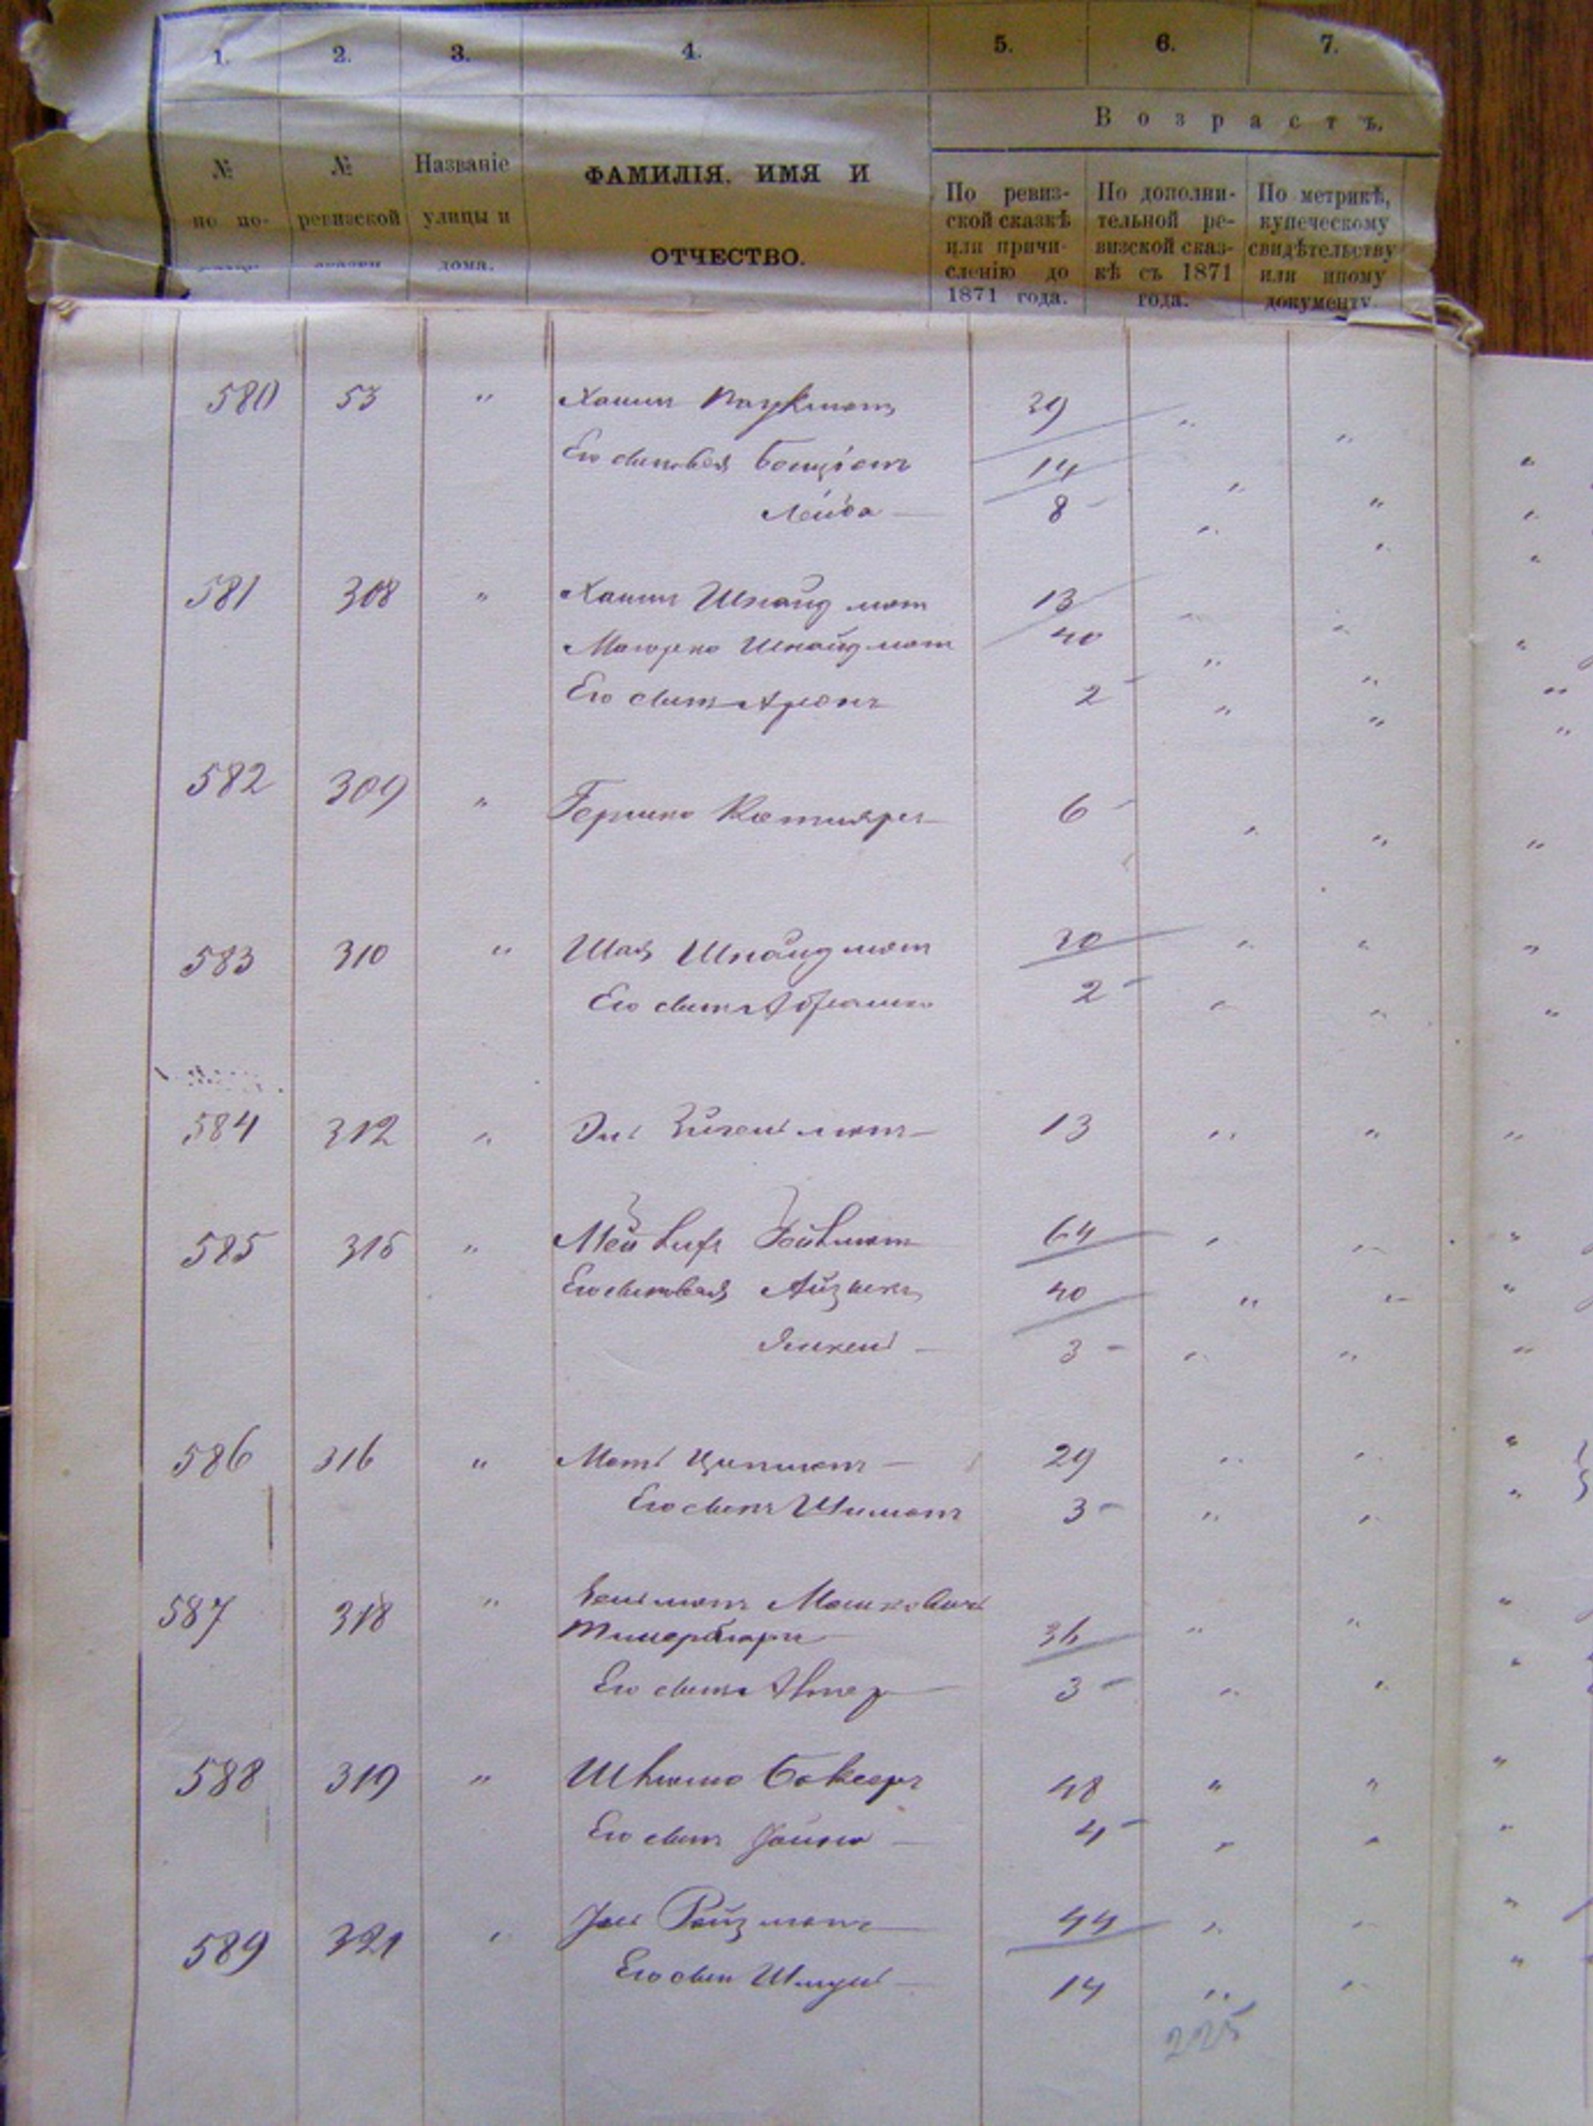 1. 2. 3. 4. 5. 6. 7.
Возрастъ.
№ по по-
№ ревизской сказки
Названіе улицы и дома.
ФАМИЛІЯ, ИМЯ И
ОТЧЕСТВО.
По ревиз-
ской сказкѣ
или причи-
сленію до
1871 года.
По дополни-
тельной ре-
визской сказ-
кѣ съ 1871
года.
По метрикѣ,
купеческому
свидѣтельству
или иному
документу.
580 53 " Хаимъ 39 " "
Его сыновья 14 " "
Лейба — 8 " "
581 308 " Хаимъ Шнайдманъ 13 " "
Мошко Шнайдманъ 40 " "
Его сынъ Аронъ 2 " "
582 309 " Гершко Котляръ 6 " "
583 310 " Шая Шнайдманъ 30 " "
Его сынъ Абрамко 2 " "
584 312 " 13 " "
585 315 " Мей Фойхманъ 64 " "
Его сыновья Айзикъ 40 " "
Янкель — 3 " "
586 316 " Ципманъ — 29 " "
Его сынъ Шимонъ 3 " "
587 318 " Зельманъ Мошковичъ
36 " "
Его сынъ Алтер 3 " "
588 319 " Шлиомо Боксеръ 48 " "
Его сынъ 4 " "
589 321 " Ройзманъ 44 " "
Его сынъ Шмуль 14 " "
225